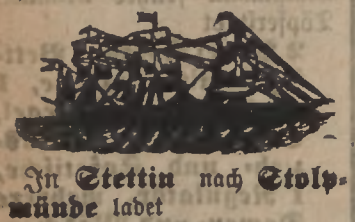 In Stettin nach Stolp-
münde ladet